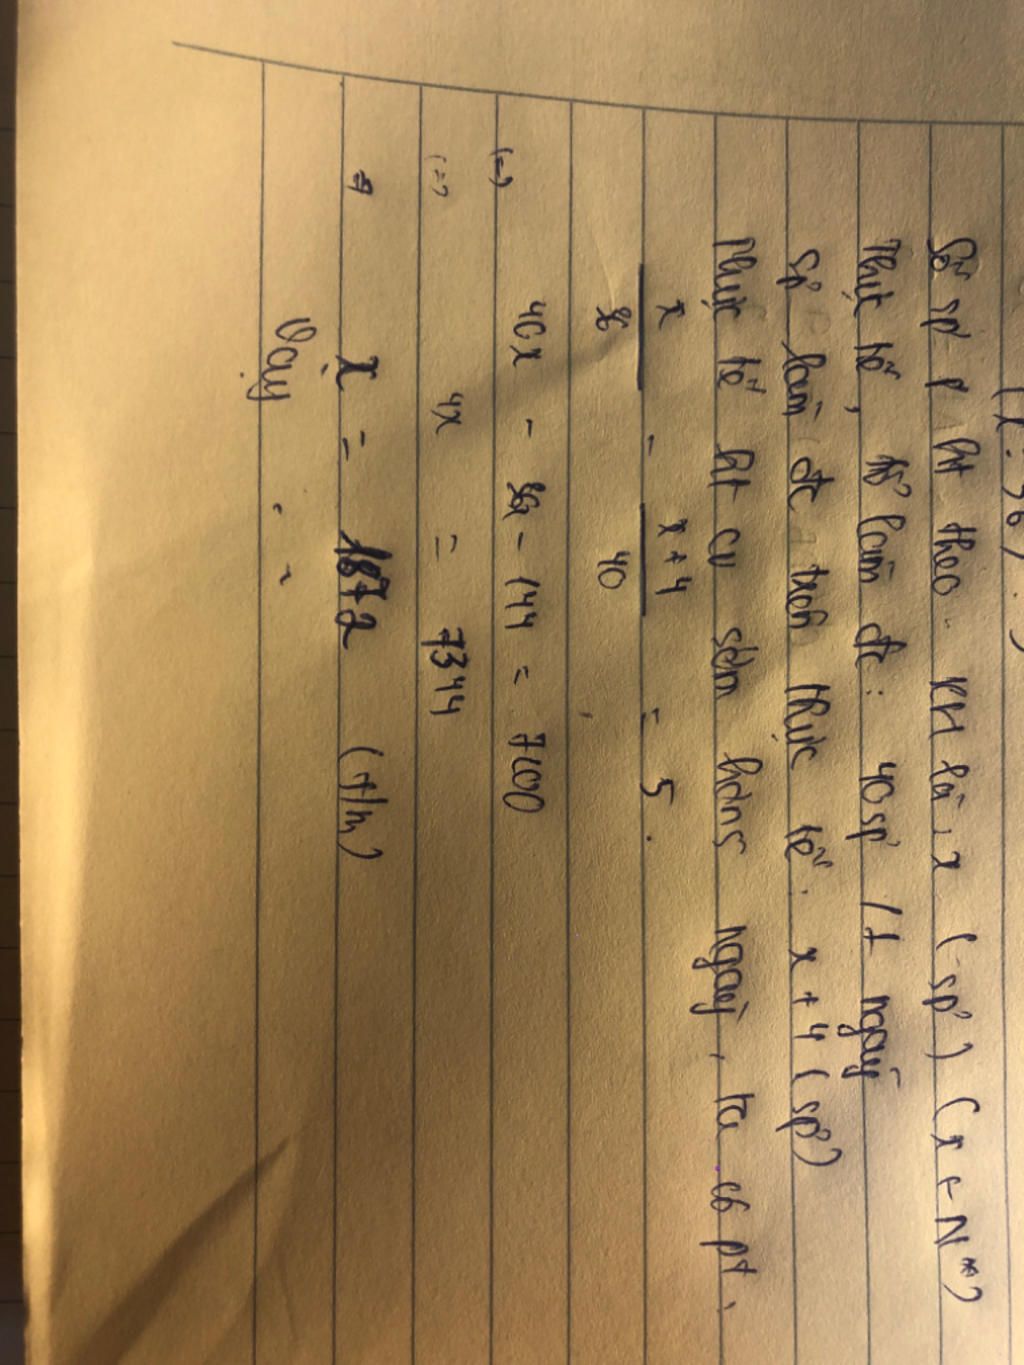 (x : 36)
Số sp p ht theo KH là x (sp) (x ∈ N*)
Thực tế, tổ làm đc: 40 sp / 1 ngày
Sp làm đc trên thực tế: x + 4 (sp)
Thực tế ht cv sớm hơn 5 ngày, ta có pt,
x/36 - (x + 4)/40 = 5.
(=) 40x - 36x - 144 = 7200
(=) 4x = 7344
x = 1872 (t/m)
Vậy . .